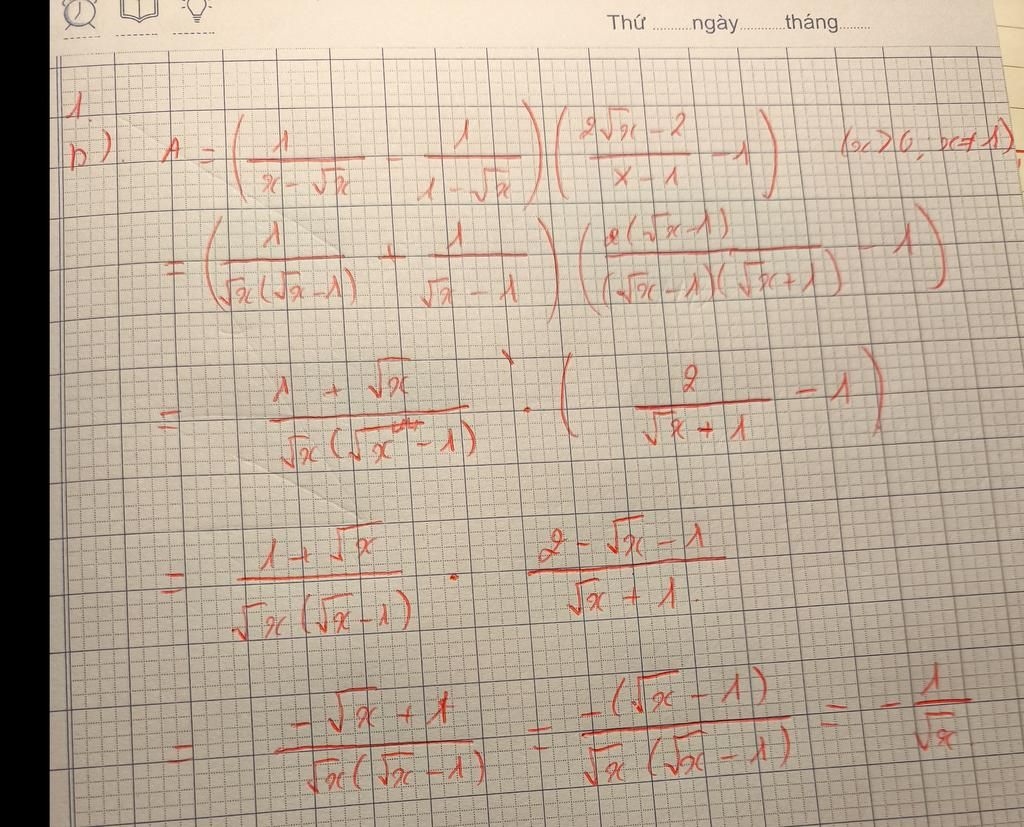 Thứ ..........ngày..........tháng.......
1.
b). A = (1/(x - √x) - 1/(1 - √x)) ((2√x - 2)/(x - 1) - 1) (x > 0; x ≠ 1)
= (1/(√x(√x - 1)) + 1/(√x - 1)) (2(√x - 1)/((√x - 1)(√x + 1)) - 1)
= (1 + √x)/(√x(√x - 1)) . (2/(√x + 1) - 1)
= (1 + √x)/(√x(√x - 1)) . (2 - √x - 1)/(√x + 1)
= (-√x + 1)/(√x(√x - 1)) = -(√x - 1)/(√x(√x - 1)) = - 1/√x